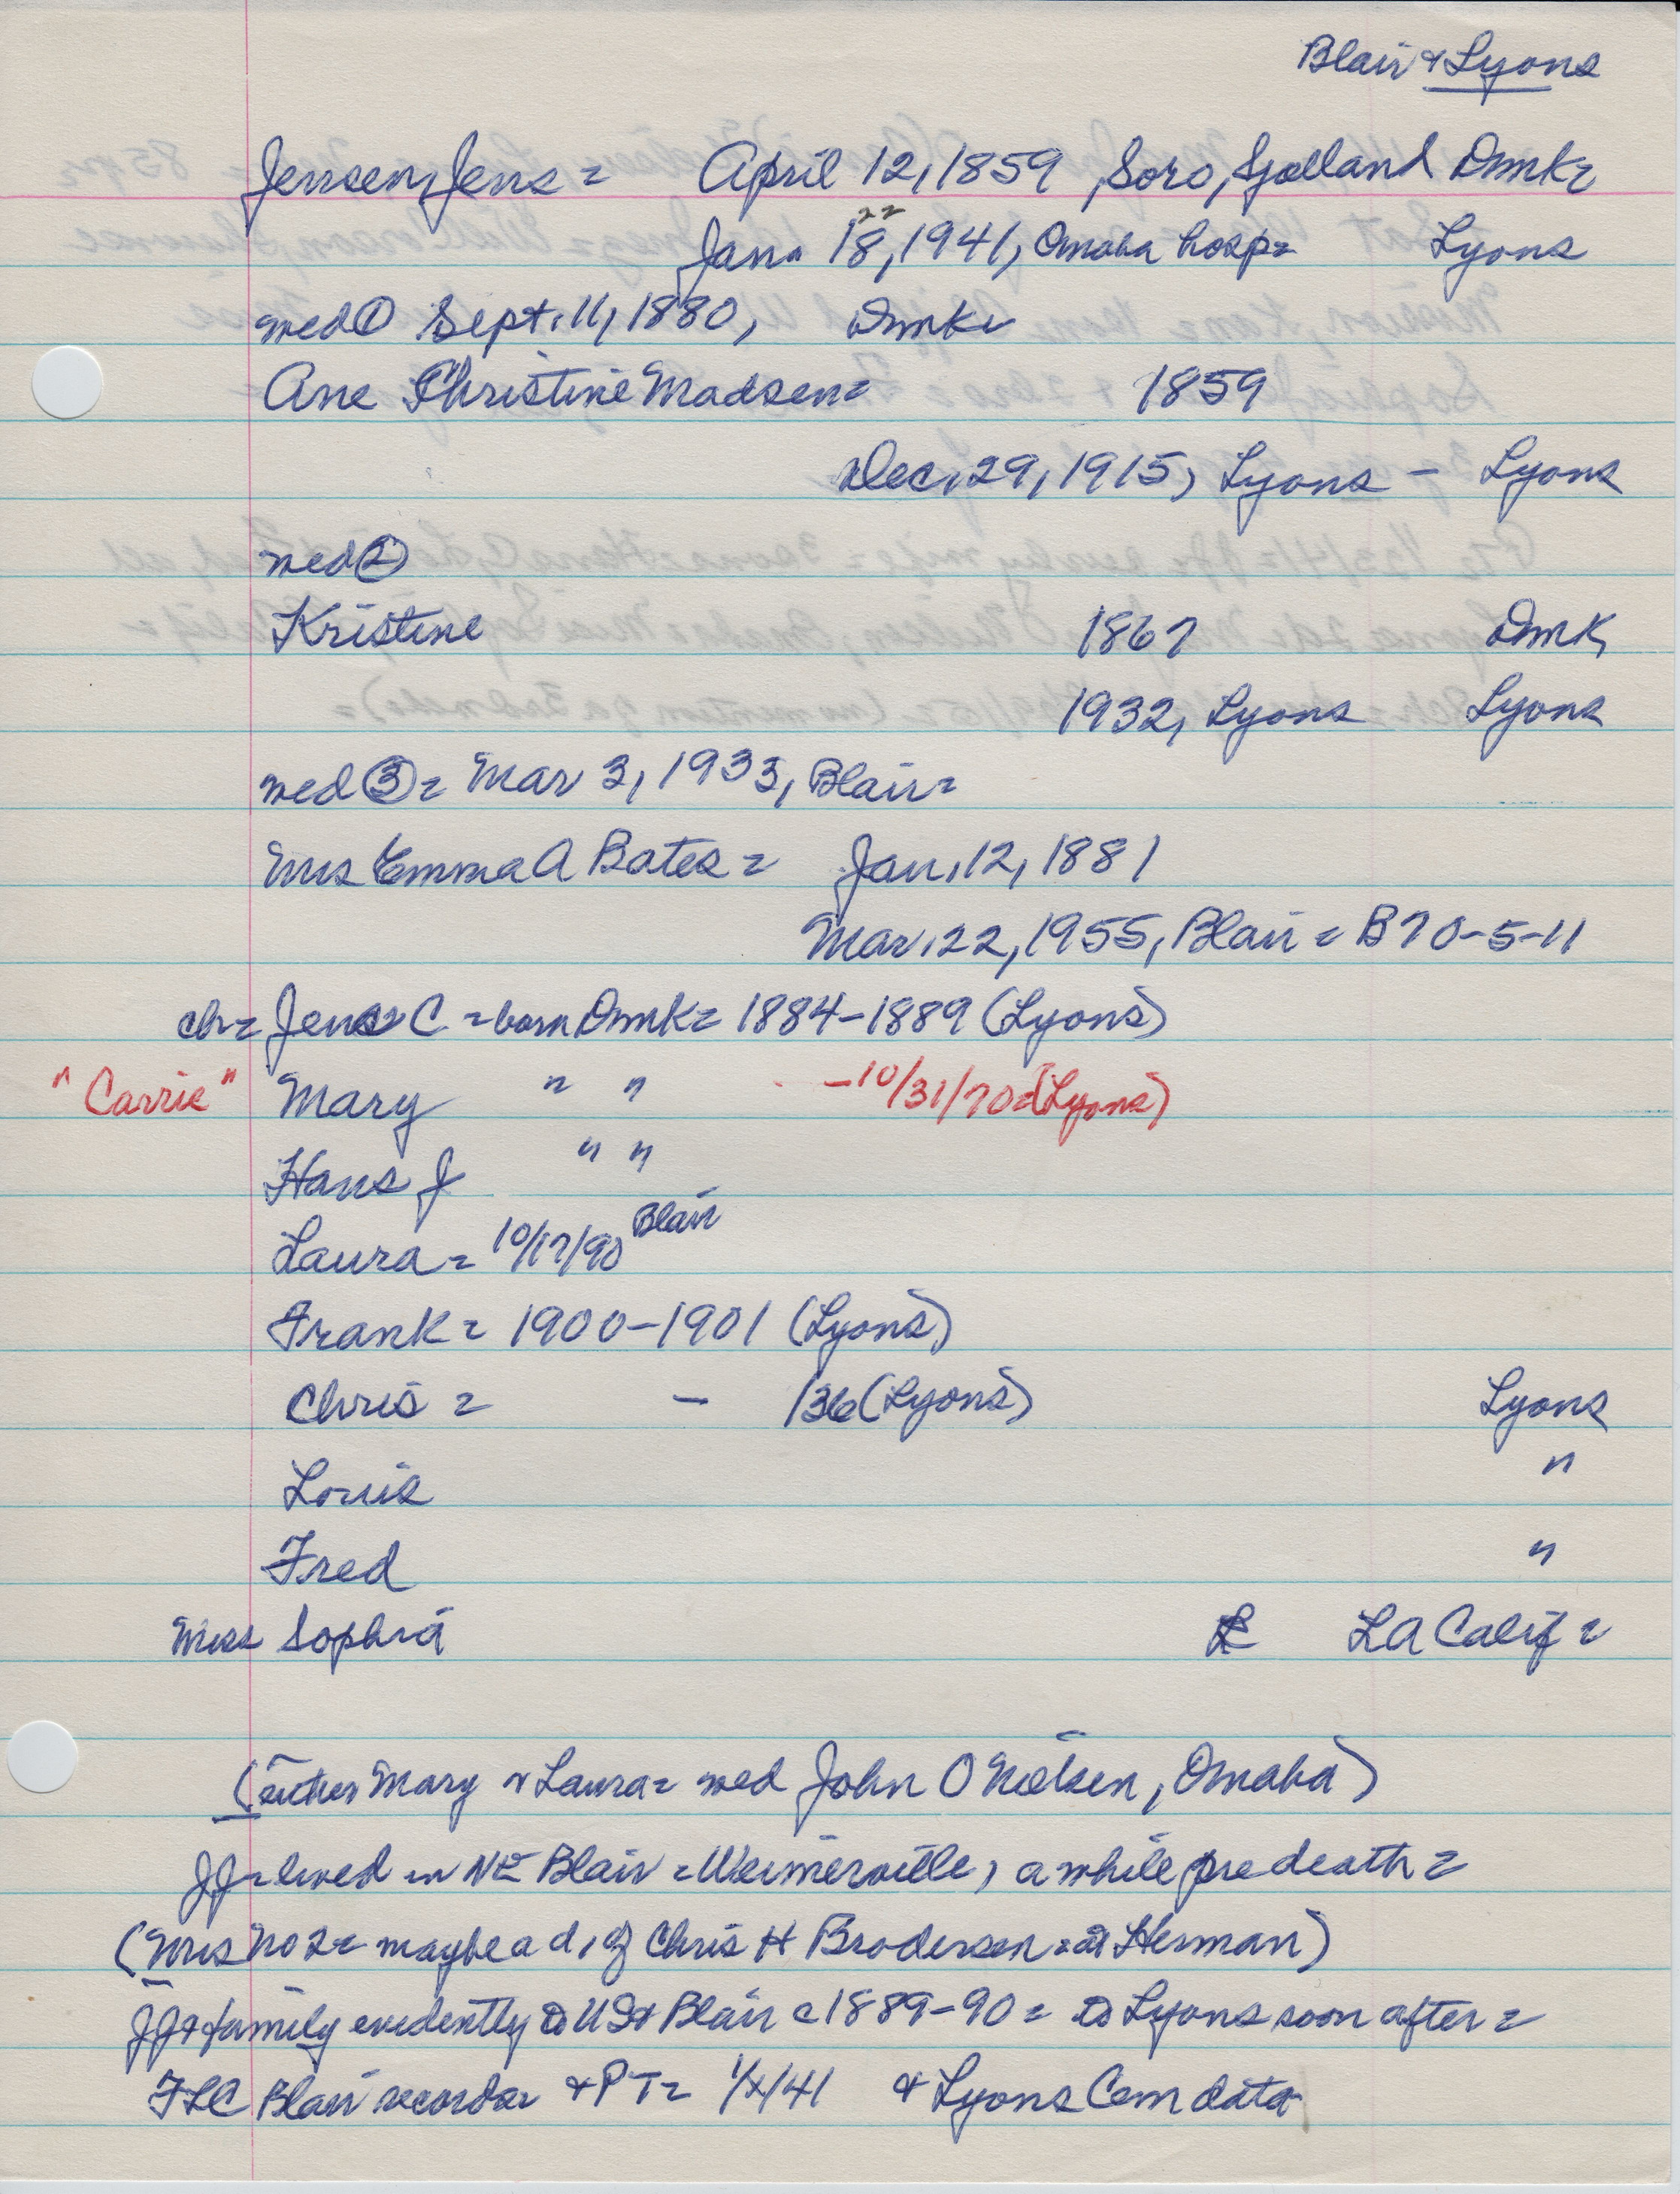 Blair & Lyons
Jensen, Jens = April 12, 1859, Soro, Sjælland Dmk =
22
Jan. 18, 1941, Omaha hosp = Lyons
wed ① Sept. 11, 1880, Dmk
Ane Christine Madsen = 1859
Dec. 29, 1915, Lyons - Lyons
wed ②
Kristine 1867 Dmk,
1932, Lyons Lyons
wed ③ = Mar 3, 1933, Blair =
Mrs Emma A Bates = Jan. 12, 1881
Mar. 22, 1955, Blair = B70-5-11
ch = Jens C = born Dmk = 1884-1889 (Lyons)
"Carrie" Mary " " -10/31/70 = (Lyons)
Hans J " "
Laura = 10/17/90 Blair
Frank = 1900-1901 (Lyons)
Chris = - /36 (Lyons) Lyons
Louis "
Fred "
Miss Sophia LA Calif =
(either Mary or Laura = wed John O Nielsen, Omaha)
JJ = lived in NE Blair = Weimerville, a while pre death =
(Mrs No 2 = maybe a d. of Chris H Brodersen = at Herman)
JJ & family evidently to US & Blair c 1889-90 = to Lyons soon after =
FLC Blair records & PT = 1/x/41 & Lyons Cem data